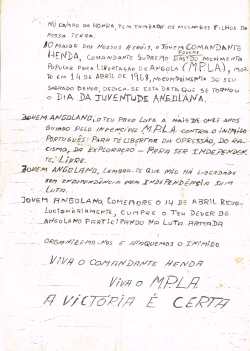 NO CAMPO DA HONRA, TEM TOMBADO OS MELHORES FILHOS DA
NOSSA TERRA.
O MAIOR DOS NOSSOS HERÓIS, O JOVEM COMANDANTE
HENDA, COMANDANTE SUPREMO DESTE MOVIMENTO
POPULAR PARA LIBERTAÇÃO DE ANGOLA (MPLA), MOR-
TO EM 14 DE ABRIL DE 1968, NO CUMPRIMENTO DO SEU
SAGRADO DEVER, DEDICA-SE ESTA DATA QUE SE TORNOU
O DIA DA JUVENTUDE ANGOLANA.
JOVEM ANGOLANO, O TEU POVO LUTA A MAIS DE ONZE ANOS
GUIADO PELO INVENCÍVEL MPLA CONTRA O INIMIGO
PORTUGUÊS: PARA TE LIBERTAR DA OPRESSÃO, DO RA-
CISMO, DA EXPLORAÇÃO — PARA SER INDEPENDEN-
TE, LIVRE.
JOVEM ANGOLANO, LEMBRA-TE QUE NÃO HÁ LIBERDADE
SEM INDEPENDÊNCIA NEM INDEPENDÊNCIA SEM
LUTA.
JOVEM ANGOLANO, COMEMORE O 14 DE ABRIL REVO-
LUCIONARIAMENTE, CUMPRE O TEU DEVER DE
ANGOLANO PARTICIPANDO NA LUTA ARMADA
ORGANIZEMO-NOS E ATAQUEMOS O INIMIGO
VIVA O COMANDANTE HENDA
VIVA O MPLA
A VICTÓRIA É CERTA